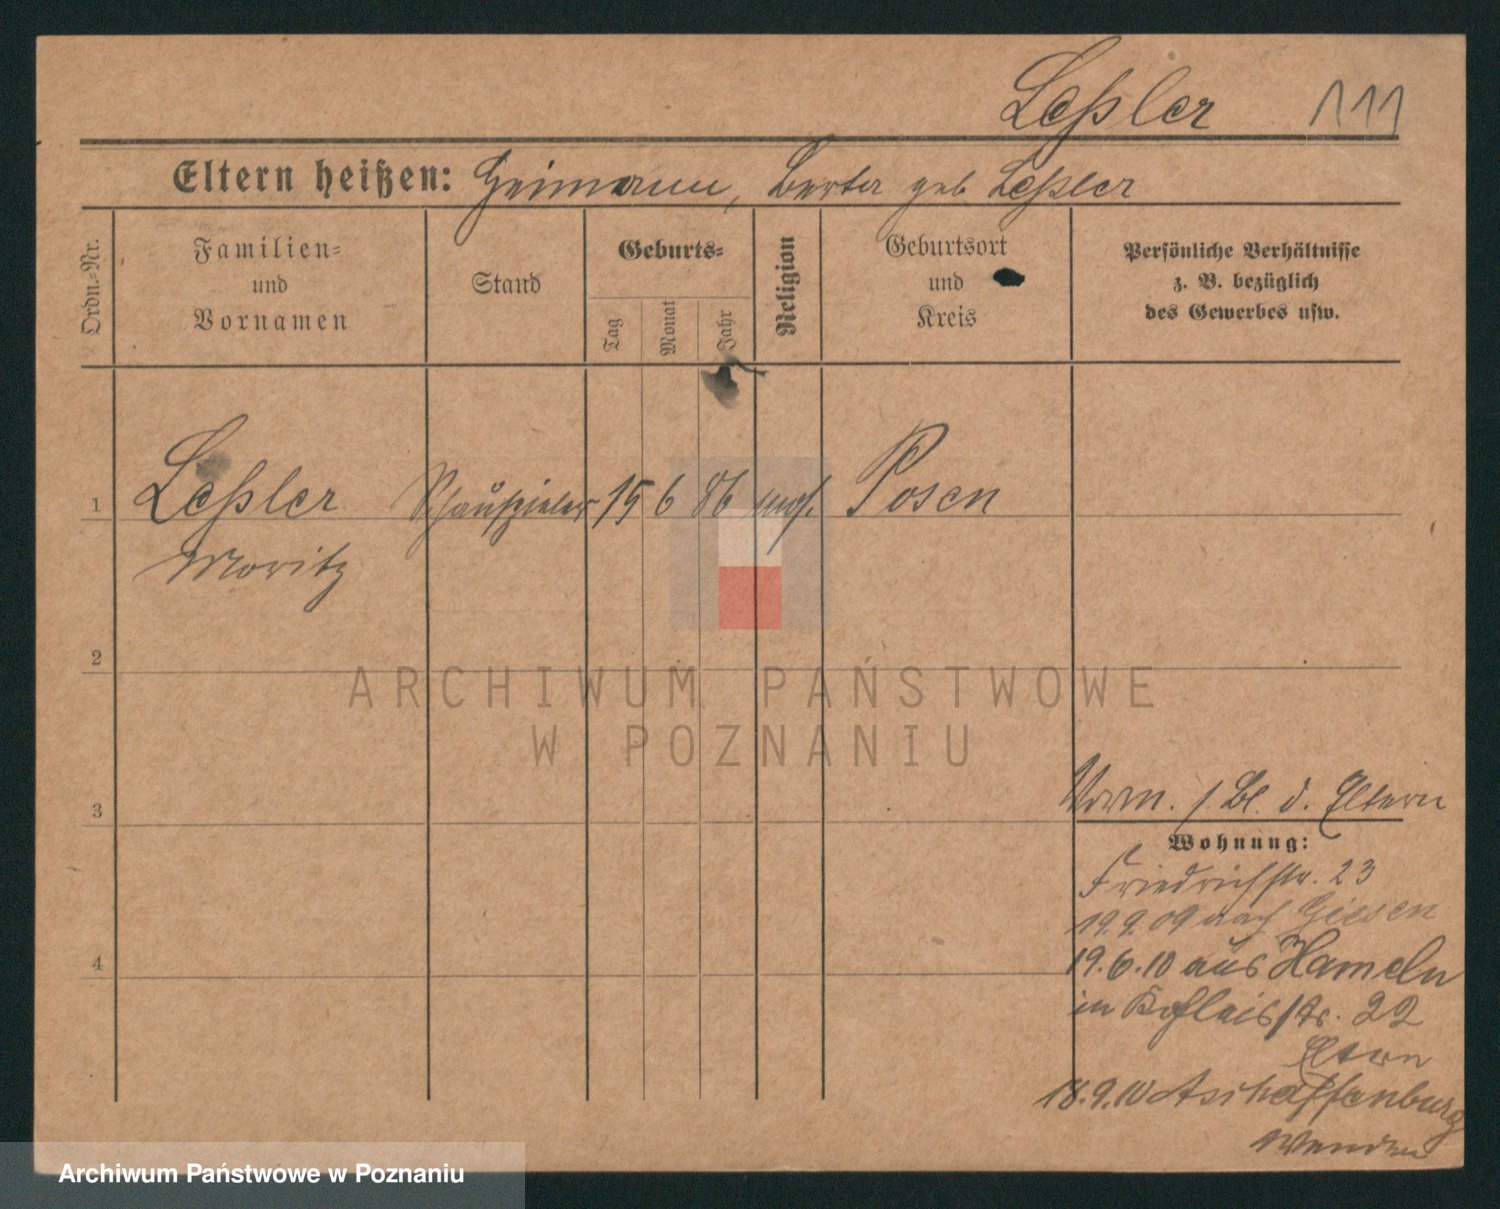 Leßler 111
Eltern heißen: Heimann, Berta geb Leßler
Ordn.-Nr.
Familien-
und
Vornamen
Stand
Geburts-
Tag
Monat
Jahr
Religion
Geburtsort
und
Kreis
Persönliche Verhältnisse
z. B. bezüglich
des Gewerbes usw.
1 Leßler Schauspieler 15 6 86 mos. Posen
Moritz
2
3
4
ARCHIWUM PAŃSTWOWE
W POZNANIU
Vorm. s. Bl. d. Eltern
Wohnung:
Friedrichstr. 23
19.9.09 nach Giesen
19.6.10 aus Hameln
in Kohleisstr. 22
Eltern
18.9.10 Aschaffenburg
Wenden
Archiwum Państwowe w Poznaniu